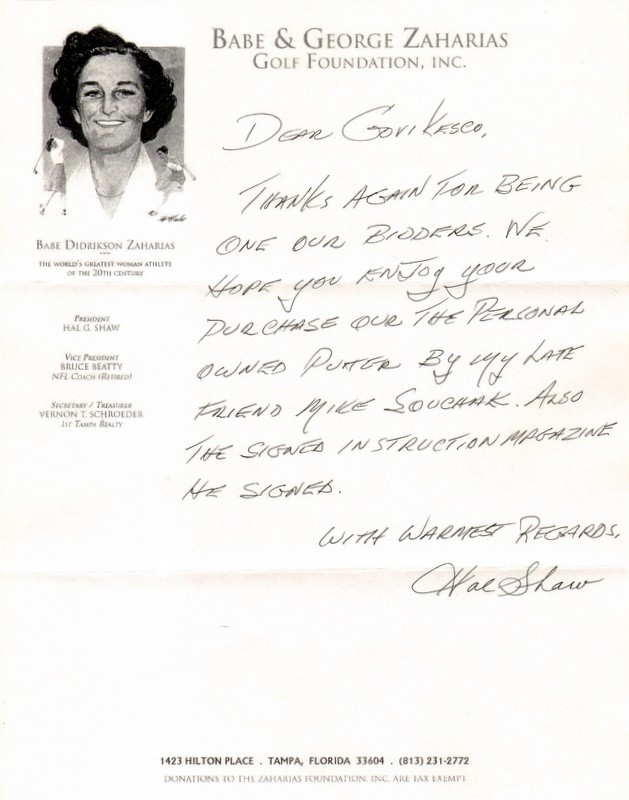 BABE & GEORGE ZAHARIAS
GOLF FOUNDATION, INC.
BABE DIDRIKSON ZAHARIAS
THE WORLD'S GREATEST WOMAN ATHLETE
OF THE 20TH CENTURY
PRESIDENT
HAL G. SHAW
VICE PRESIDENT
BRUCE BEATTY
NFL COACH (RETIRED)
SECRETARY / TREASURER
VERNON T. SCHROEDER
1ST TAMPA REALTY
DEAR GOVIKESCO,
THANKS AGAIN FOR BEING
ONE OUR BIDDERS. WE
HOPE YOU ENJOY YOUR
PURCHASE OUR THE PERSONAL
OWNED PUTTER BY MY LATE
FRIEND MIKE SOUCHAK. ALSO
THE SIGNED INSTRUCTION MAGAZINE
HE SIGNED.
WITH WARMEST REGARDS,
Hal Shaw
1423 HILTON PLACE . TAMPA, FLORIDA 33604 . (813) 231-2772
DONATIONS TO THE ZAHARIAS FOUNDATION, INC. ARE TAX EXEMPT